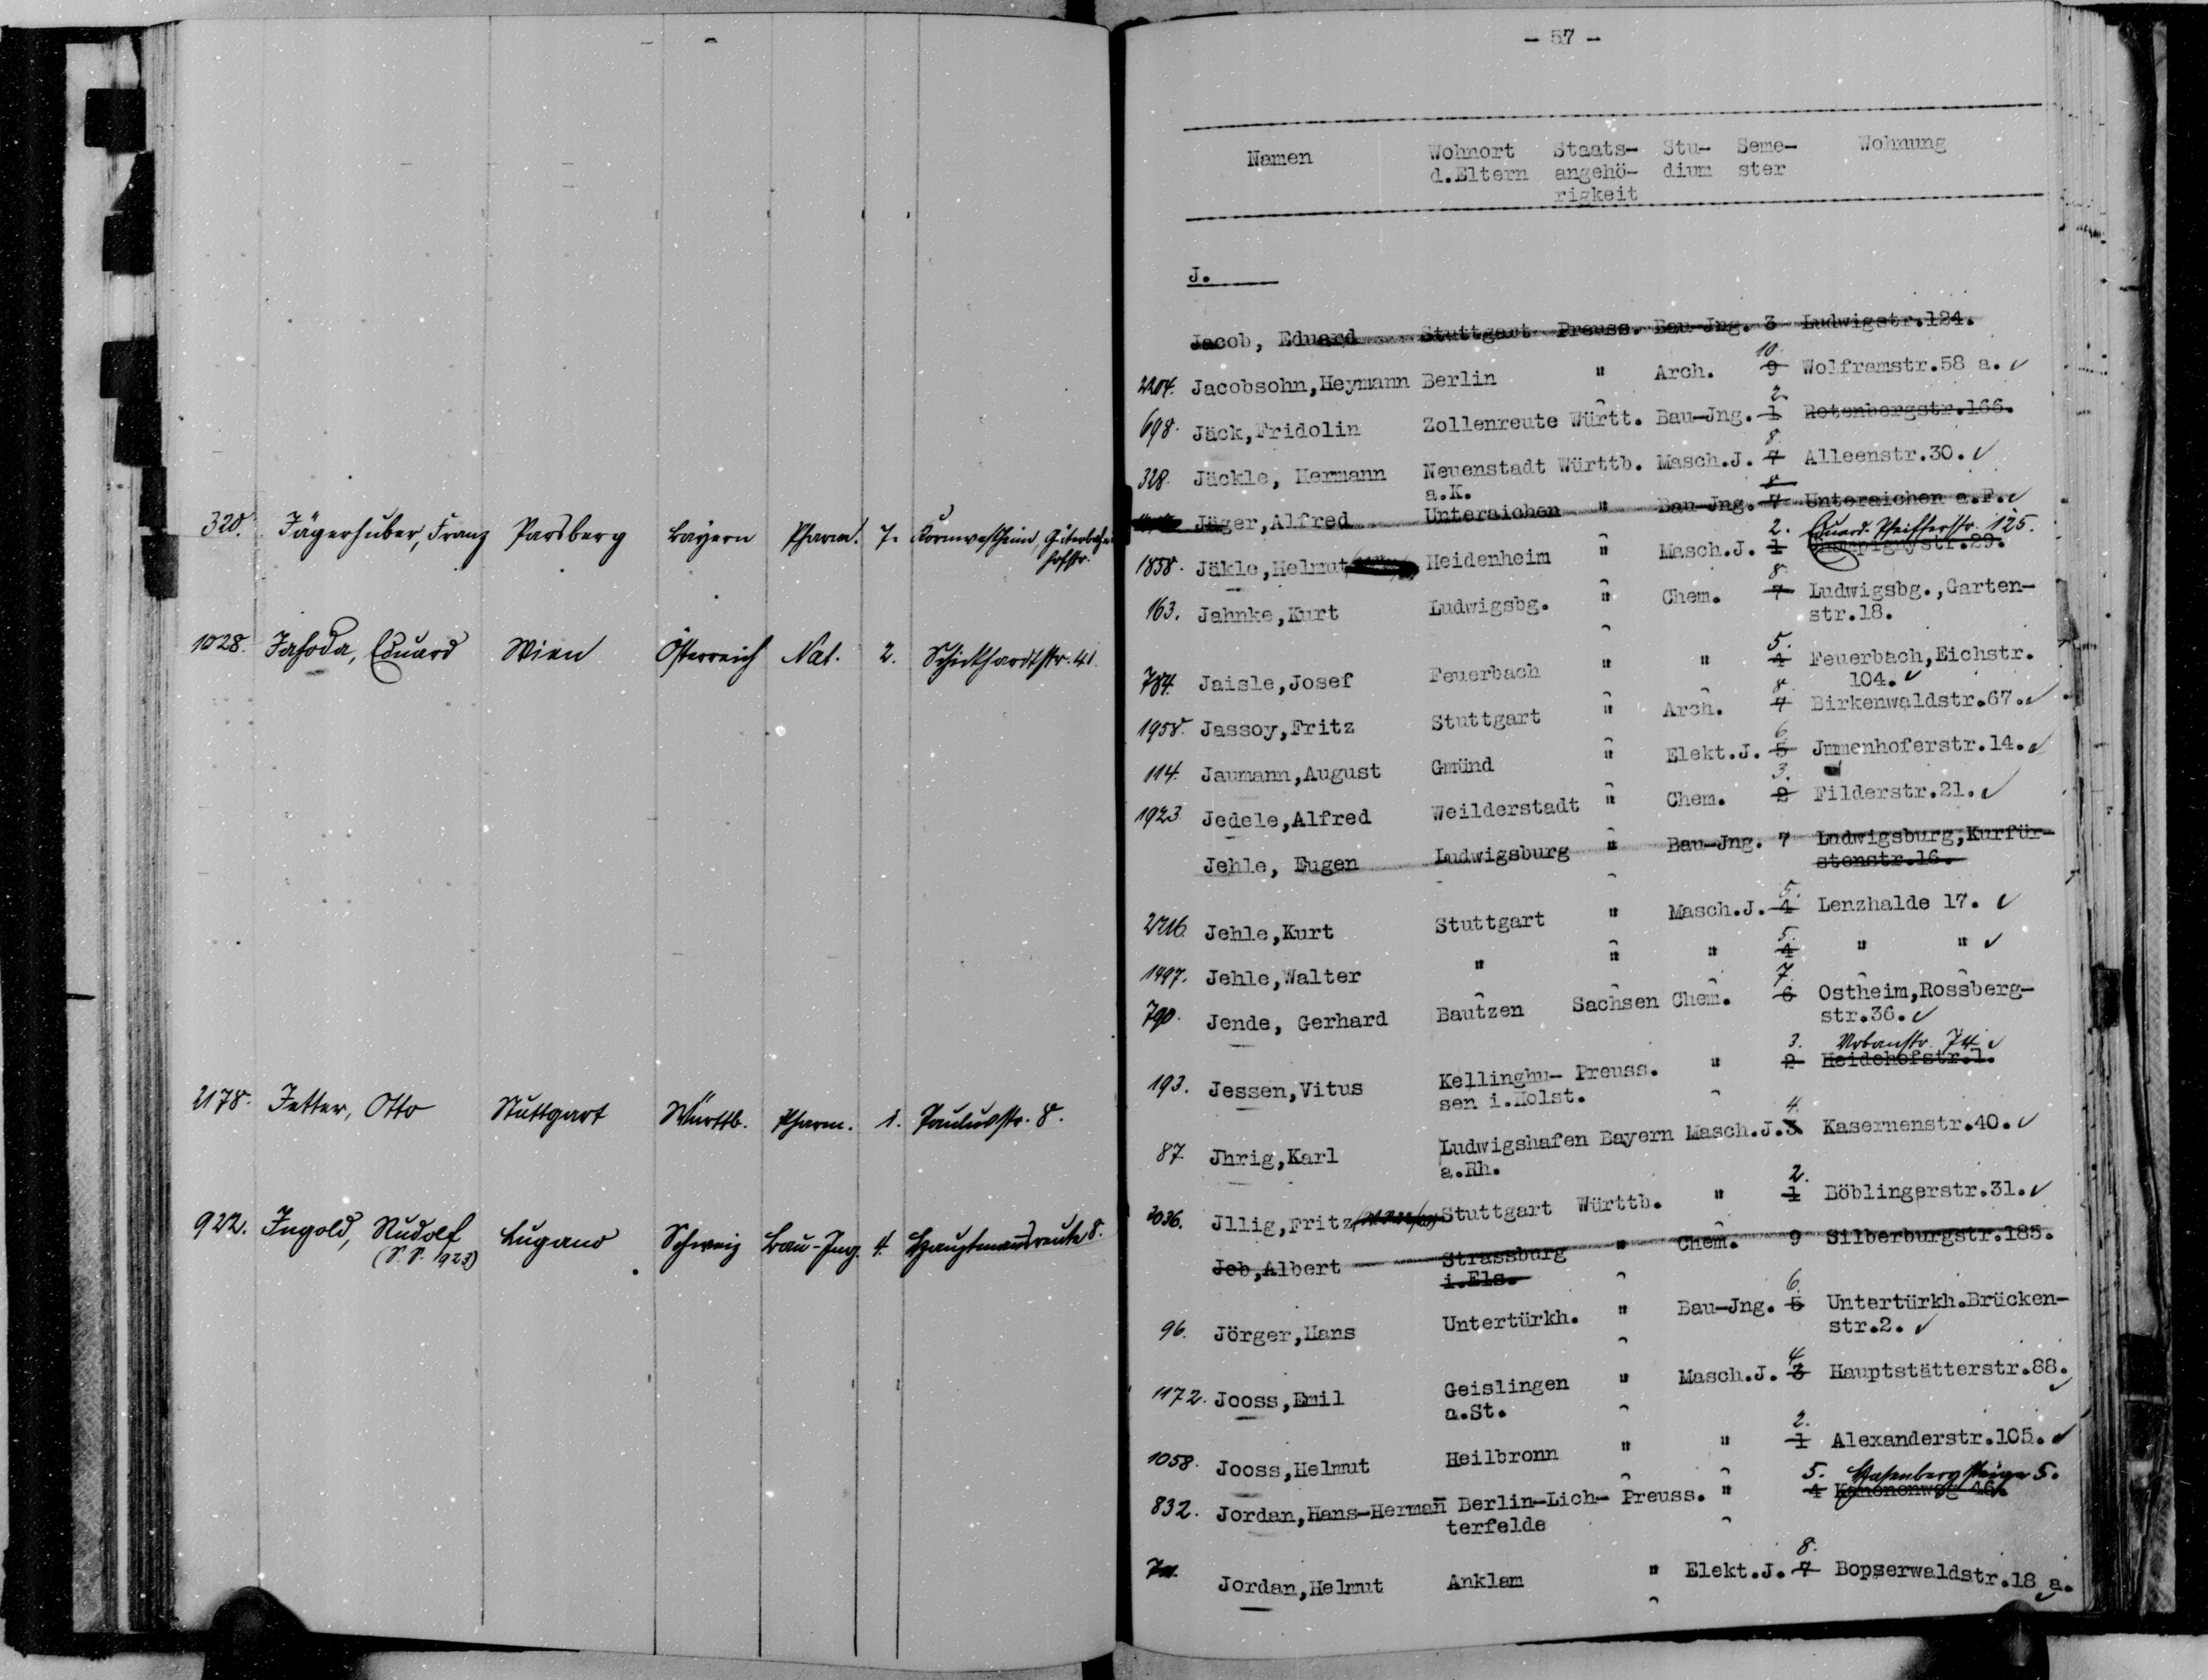 320. Jägerhuber, Franz Parsberg Bayern Pharm. 7. Kornwestheim, Güterbahn-
hofstr.
1028. Jahoda, Eduard Wien Österreich Nat. 2. Schickhardtstr. 41.
2178. Jetter, Otto Stuttgart Württb. Pharm. 1. Paulusstr. 8.
922. Ingold, Rudolf Lugano Schweiz Bau-Ing. 4. Hauptmannsreute 8.
(S.S. 1923)
- 57 -
Namen Wohnort Staats- Stu- Seme- Wohnung
d.Eltern angehö- dium ster
rigkeit
J.
Jacob, Eduard Stuttgart Preuss. Bau-Jng. 3 Ludwigstr.124.
10.
2204. Jacobsohn,Heymann Berlin " Arch. 9 Wolframstr.58 a.
2.
698. Jäck,Fridolin Zollenreute Württ. Bau-Jng. 1 Rotenbergstr.166.
8.
328. Jäckle, Hermann Neuenstadt Württb. Masch.J. 7 Alleenstr.30.
a.K.
8
Jäger,Alfred Unteraichen " Bau-Jng. 7 Unteraichen a.F.
2. Eduard-Pfeifferstr. 125.
1858. Jäkle,Helmut Heidenheim " Masch.J. 1 Champignystr.29.
8.
163. Jahnke,Kurt Ludwigsbg. " Chem. 7 Ludwigsbg.,Garten-
str.18.
5.
784. Jaisle,Josef Feuerbach " " 4 Feuerbach,Eichstr.
104.
8.
1958. Jassoy,Fritz Stuttgart " Arch. 7 Birkenwaldstr.67.
6.
114. Jaumann,August Gmünd " Elekt.J. 5 Jmmenhoferstr.14.
3.
1923 Jedele,Alfred Weilderstadt " Chem. 2 Filderstr.21.
Jehle, Eugen Ludwigsburg " Bau-Jng. 7 Ludwigsburg,Kurfür-
stenstr.16.
5.
2216. Jehle,Kurt Stuttgart " Masch.J. 4 Lenzhalde 17.
5.
1497. Jehle,Walter " " " 4 " "
7.
790. Jende, Gerhard Bautzen Sachsen Chem. 6 Ostheim,Rossberg-
str.36.
3. Urbanstr. 74
193. Jessen,Vitus Kellinghu- Preuss. " 2 Heidehofstr.1.
sen i.Holst.
4.
87. Jhrig,Karl Ludwigshafen Bayern Masch.J. 3 Kasernenstr.40.
a.Rh.
2.
2036. Jllig,Fritz Stuttgart Württb. " 1 Böblingerstr.31.
Job,Albert Strassburg " Chem. 9 Silberburgstr.185.
i.Els.
6.
96. Jörger,Hans Untertürkh. " Bau-Jng. 5 Untertürkh.Brücken-
str.2.
4
1172. Jooss,Emil Geislingen " Masch.J. 3 Hauptstätterstr.88.
a.St.
2.
1058. Jooss,Helmut Heilbronn " " 1 Alexanderstr.105.
5. 5.
832. Jordan,Hans-Herman Berlin-Lich- Preuss. " 4 46.
terfelde
8.
Jordan,Helmut Anklam " Elekt.J. 7 Bopserwaldstr.18 a.